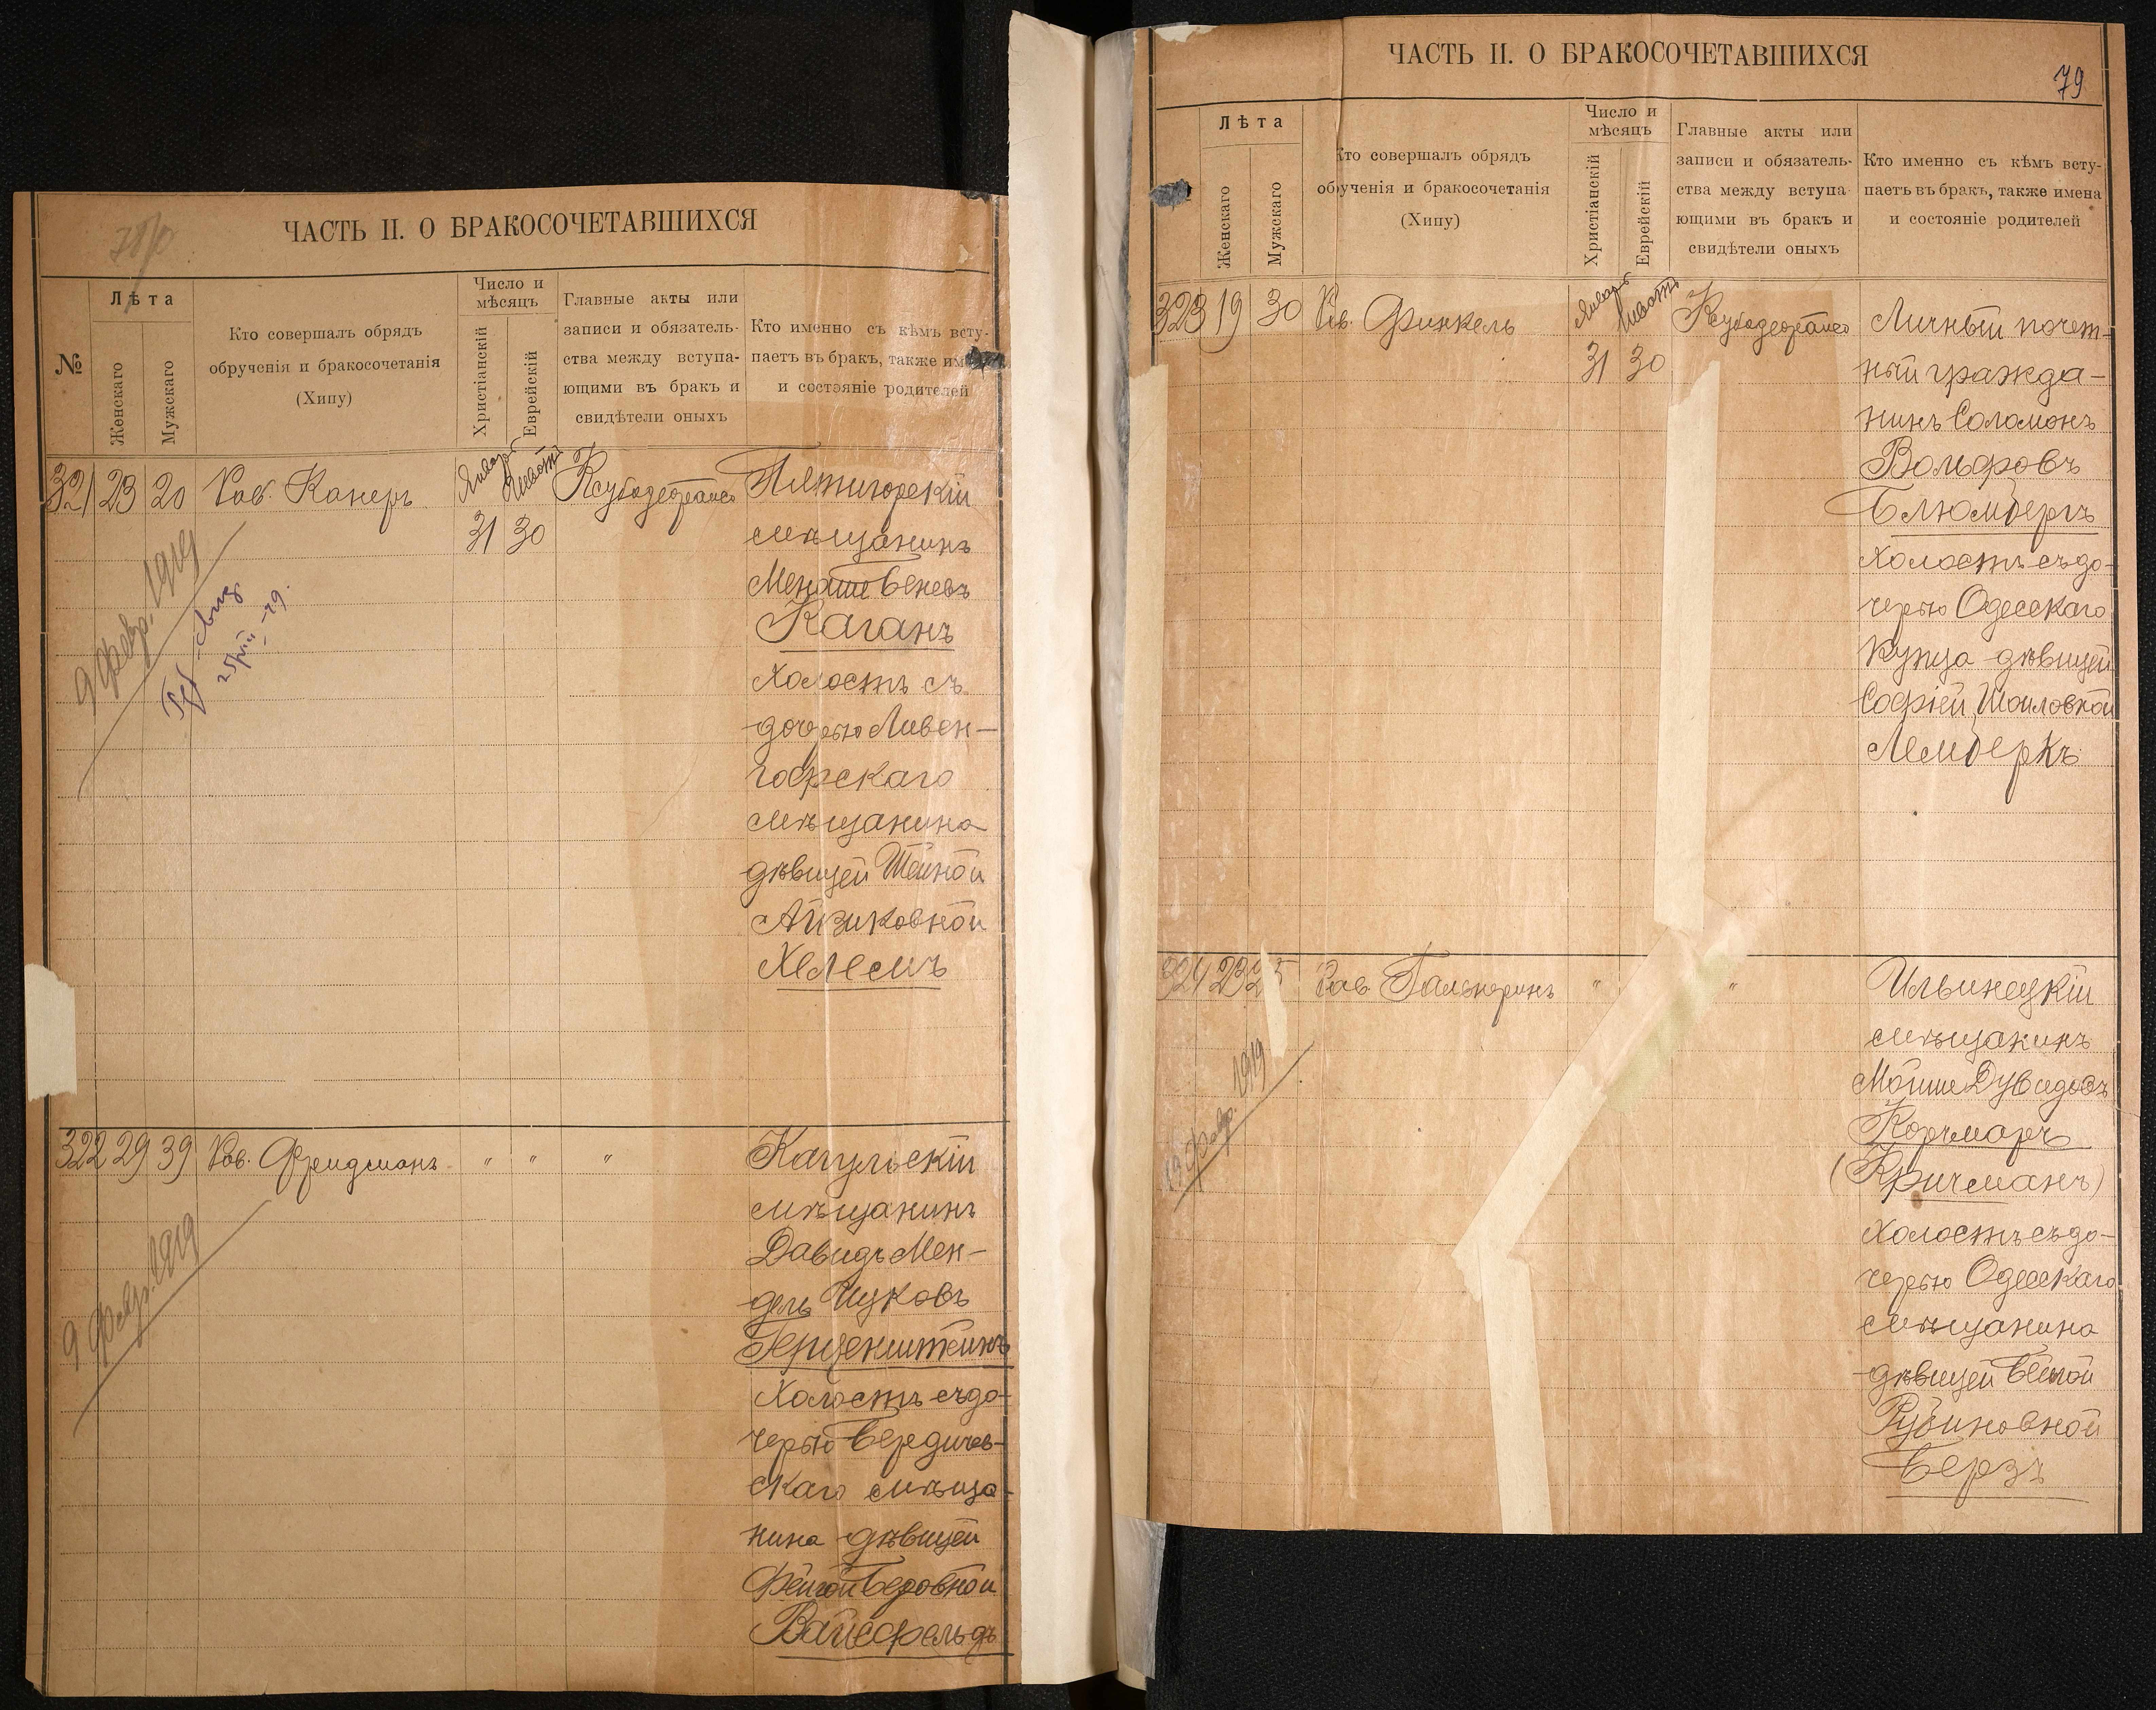 ЧАСТЬ II. О БРАКОСОЧЕТАВШИХСЯ
№
Лѣта
Женскаго
Мужскаго
Кто совершалъ обрядъ
обрученія и бракосочетанія
(Хипу)
Число и
мѣсяцъ
Христіанскій
Еврейскій
Главные акты или
записи и обязатель-
ства между вступа-
ющими въ бракъ и
свидѣтели оныхъ
Кто именно съ кѣмъ всту-
паетъ въ бракъ, также име
и состояніе родителей
321 23 20 Рав. Канеръ
Январь
Шватъ
31 30
Пятигорскій
мѣщанинъ
Менаше Беневъ
Каганъ
холостъ съ
дочерью Ливен-
гофскаго
мѣщанина
дѣвицей Шейной
Айзиковной
Хелемъ
9 Февр. 1919
322 29 39 Рав. Фридманъ " " "
Кагульскій
мѣщанинъ
Давидъ Мен-
дель Ицковъ
Герценштейнъ
холостъ съ до-
черью Бердичев-
скаго мѣща-
нина дѣвицей
Фейгой Беровной
Вайсфельдъ
9 Февр. 1919
ЧАСТЬ II. О БРАКОСОЧЕТАВШИХСЯ
79
Лѣта
Женскаго
Мужскаго
Кто совершалъ обрядъ
обрученія и бракосочетанія
(Хипу)
Число и
мѣсяцъ
Христіанскій
Еврейскій
Главные акты или
записи и обязатель-
ства между вступа-
ющими въ бракъ и
свидѣтели оныхъ
Кто именно съ кѣмъ всту-
паетъ въ бракъ, также имена
и состояніе родителей
323 19 30 Рав. Финкель
Январь
Шватъ
31 30
Личный почет-
ный гражда-
нинъ Соломонъ
Вольфовъ
Блюмбергъ
холостъ съ до-
черью Одесскаго
купца дѣвицей
Софіей Шоиловной
Лембергъ
324 23 25 Рав. Гальперинъ " "
Ильинецкій
мѣщанинъ
Мойше Дувидовъ
Корчмаръ
(Кричманъ)
холостъ съ до-
черью Одесскаго
мѣщанина
дѣвицей Бейлой
Рубиновной
Берзъ
19 Февр. 1919